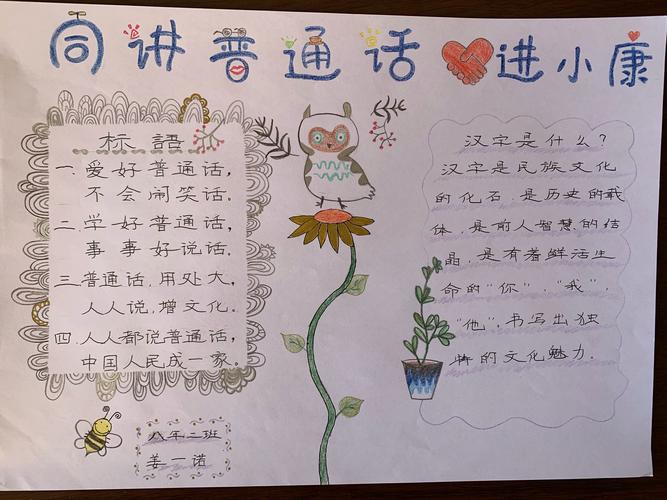 同讲普通话 进小康
标語
一.爱好普通话，
不会闹笑话.
二.学好普通话，
事事好说话.
三.普通话，用处大，
人人说，增文化.
四.人人都说普通话，
中国人民成一家.
八年二班
姜一诺
汉字是什么？
汉字是民族文化
的化石，是历史的载
体，是前人智慧的结
晶，是有着鲜活生
命的“你”.“我”，
“他”，书写出独
特的文化魅力.